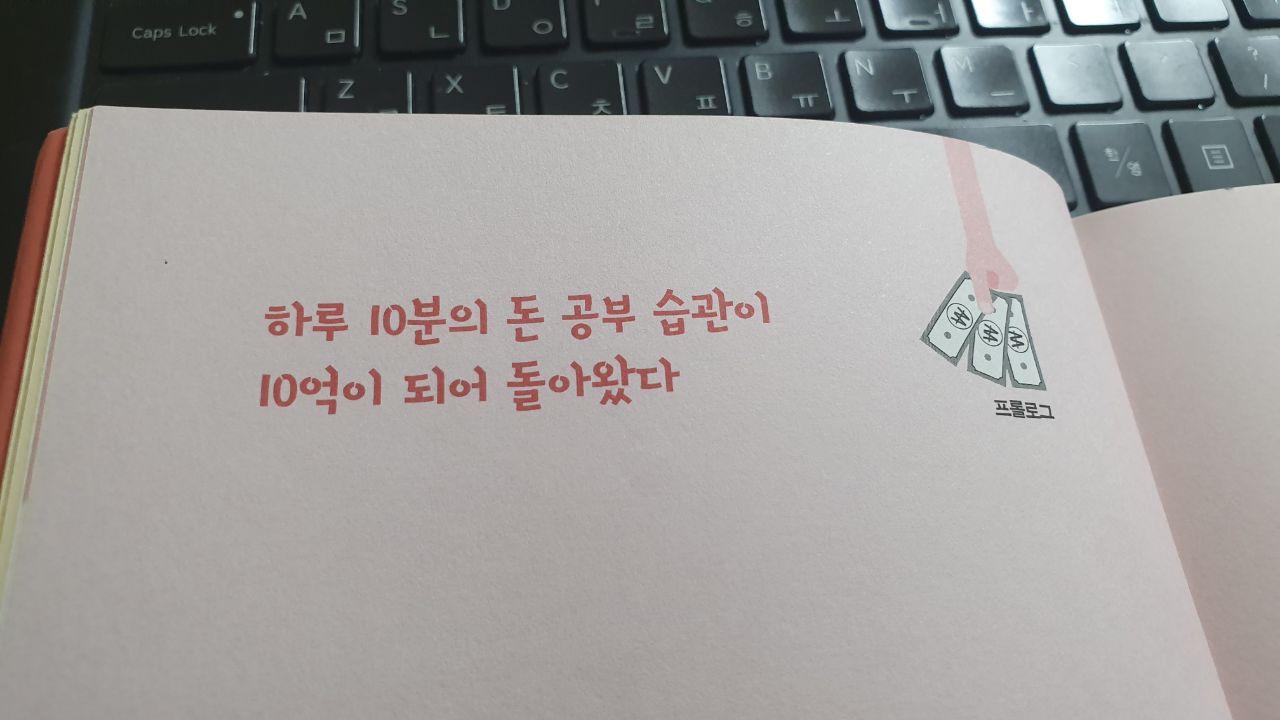 Caps Lock
A ㅁ
S ㄴ
ㅇ
ㄹ
ㅎ
ㅗ
Z
X ㅌ
C ㅊ
V ㅍ
B ㅠ
N ㅜ
M ㅡ
한/영
하루 10분의 돈 공부 습관이
10억이 되어 돌아왔다
₩ ₩ ₩
프롤로그